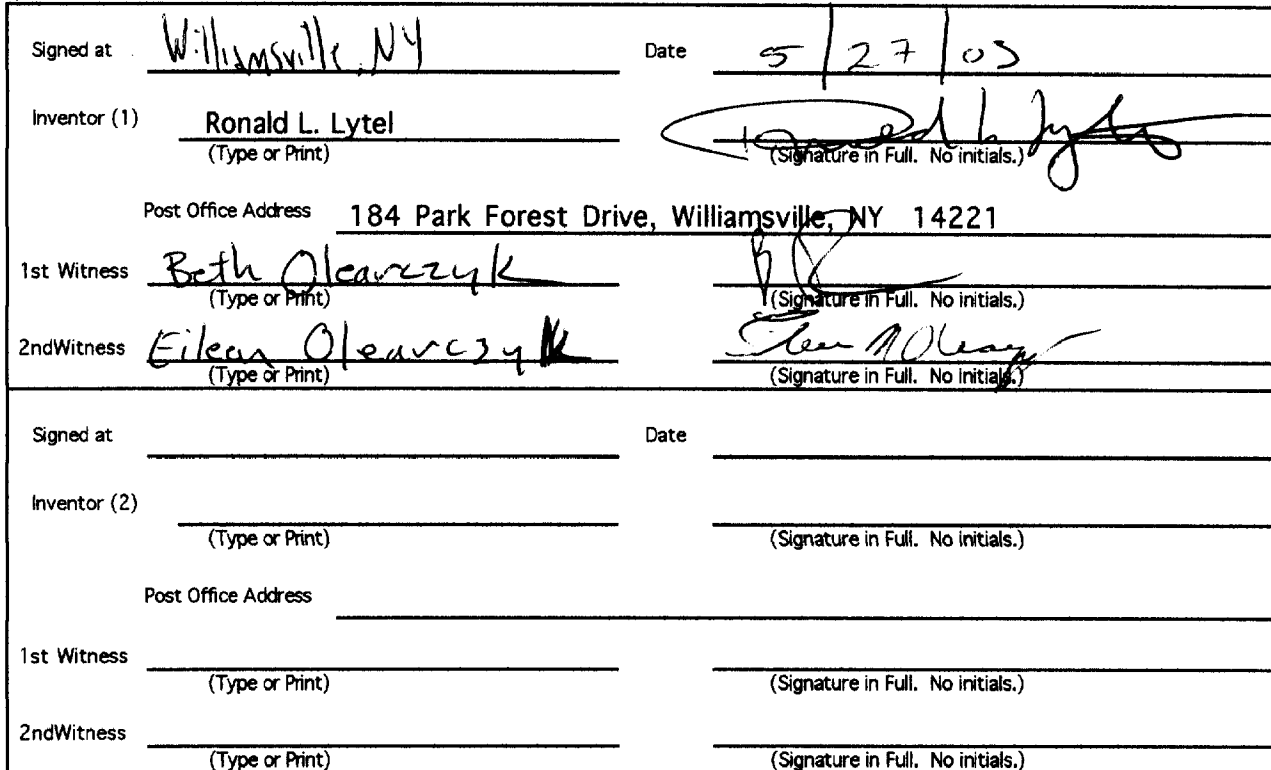 Signed at Williamsville, NY Date 5/27/03
Inventor (1) Ronald L. Lytel
(Type or Print) (Signature in Full. No initials.)
Post Office Address 184 Park Forest Drive, Williamsville, NY 14221
1st Witness Beth Olearczyk
(Type or Print) (Signature in Full. No initials.)
2ndWitness Eileen Olearczyk
(Type or Print) (Signature in Full. No initials.)
Signed at Date
Inventor (2)
(Type or Print) (Signature in Full. No initials.)
Post Office Address
1st Witness
(Type or Print) (Signature in Full. No initials.)
2ndWitness
(Type or Print) (Signature in Full. No initials.)